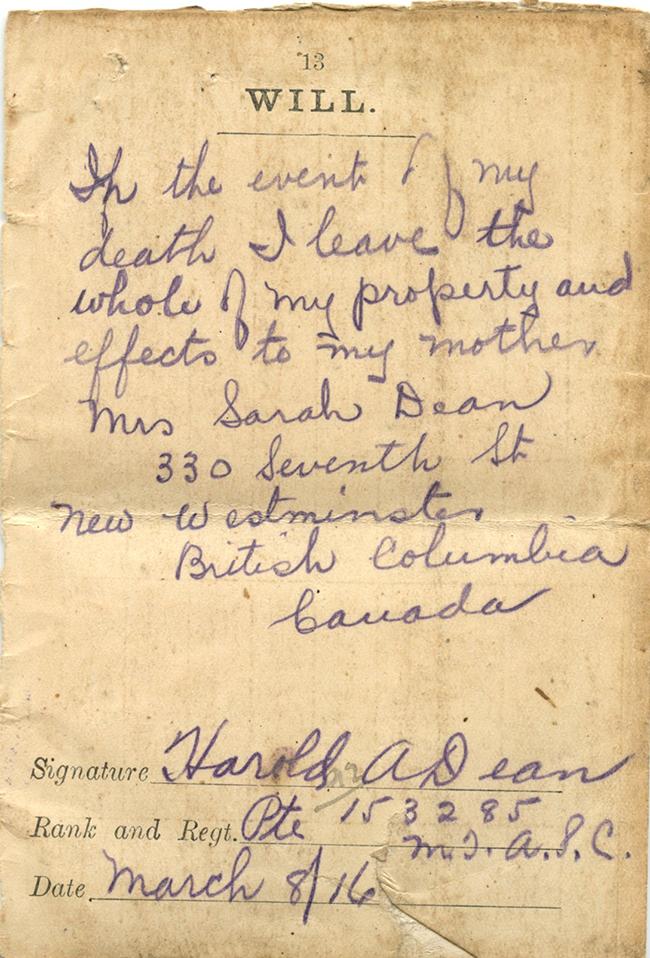 13
WILL.
In the event of my
death I leave the
whole of my property and
effects to my mother
Mrs Sarah Dean
330 Seventh St
New Westminster
British Columbia
Canada
Signature Harold A Dean
Rank and Regt. Pte 153285
M.T. A.S.C.
Date March 8/16